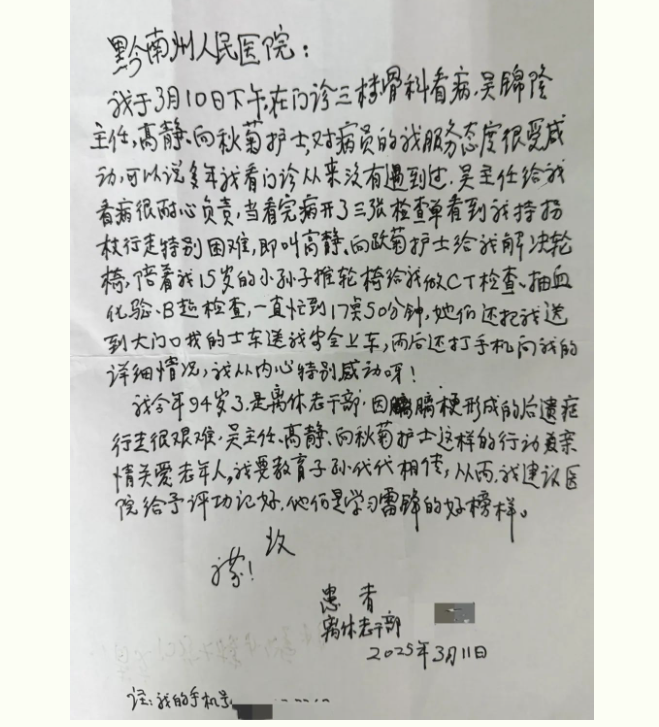 黔南州人民医院：
我于3月10日下午,在门诊三楼骨科看病,吴锦隆
主任,高静、向秋菊护士,对病员的我服务态度很受感
动,可以说多年我看门诊从来没有遇到过.吴主任给我
看病很耐心负责,当看完病开了三张检查单看到我持拐
杖行走特别困难,即叫高静、向秋菊护士给我解决轮
椅,陪着我15岁的小孙子推轮椅给我做CT检查、抽血
化验、B超检查,一直忙到17点50分钟,她们还把我送
到大门口找的士车送我安全上车,而后还打手机问我的
详细情况,我从内心特别感动呀!
我今年94岁了.是离休老干部.因脑梗形成的后遗症
行走很艰难.吴主任、高静、向秋菊护士这样的行动
亲
情关爱老年人,我要教育子孙代代相传,从而,我建议医
院给予评功记好,他们是学习雷锋的好榜样。
致
礼!
患者
离休老干部
2025年3月11日
注:我的手机号